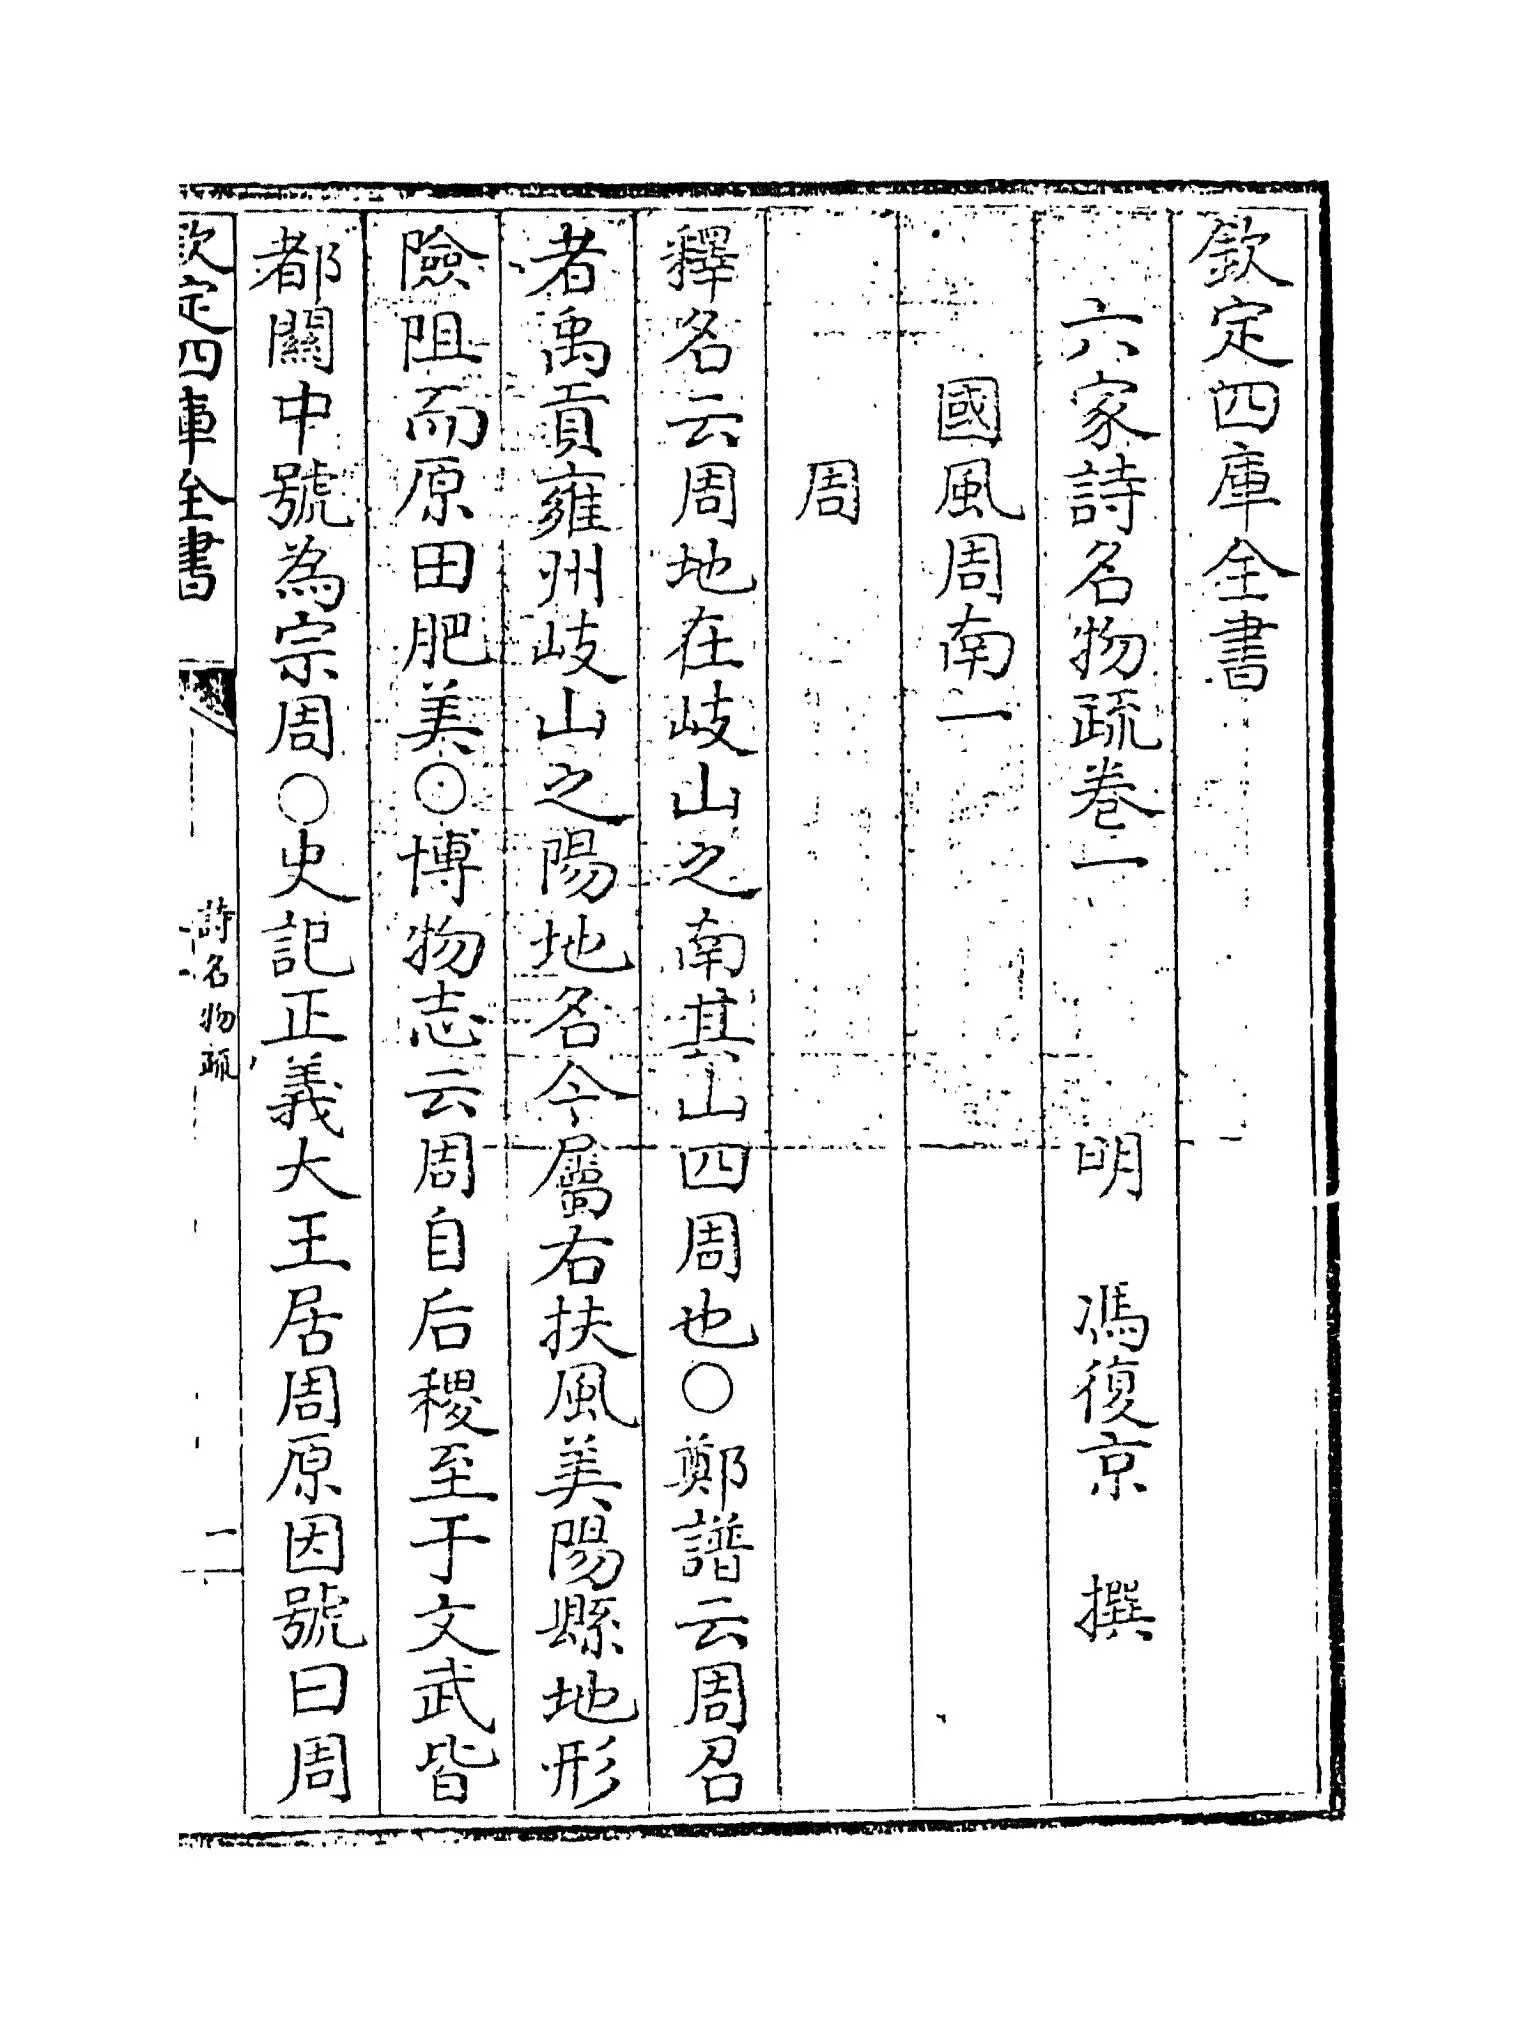 欽定四庫全書
六家詩名物疏卷一 明 馮復京 撰
國風周南一
周
釋名云周地在岐山之南其山四周也○鄭譜云周召
者禹貢雍州岐山之陽地名今屬右扶風美陽縣地形
險阻而原田肥美○博物志云周自后稷至于文武皆
都關中號為宗周○史記正義大王居周原因號曰周
欽定四庫全書
詩名物疏
一